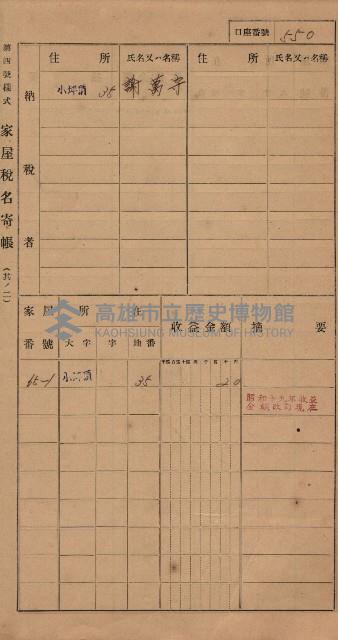 第四號樣式
家屋稅名寄帳
(其ノ一)
口座番號 550
納稅者
住所 氏名又ハ名稱 住所 氏名又ハ名稱
35 謝萬守
家屋所在 收益金額 摘要
番號 大字 字 地番
65-1 35 20
昭和十九年收益
金額改訂現在
高雄市立歷史博物館
KAOHSIUNG MUSEUM OF HISTORY